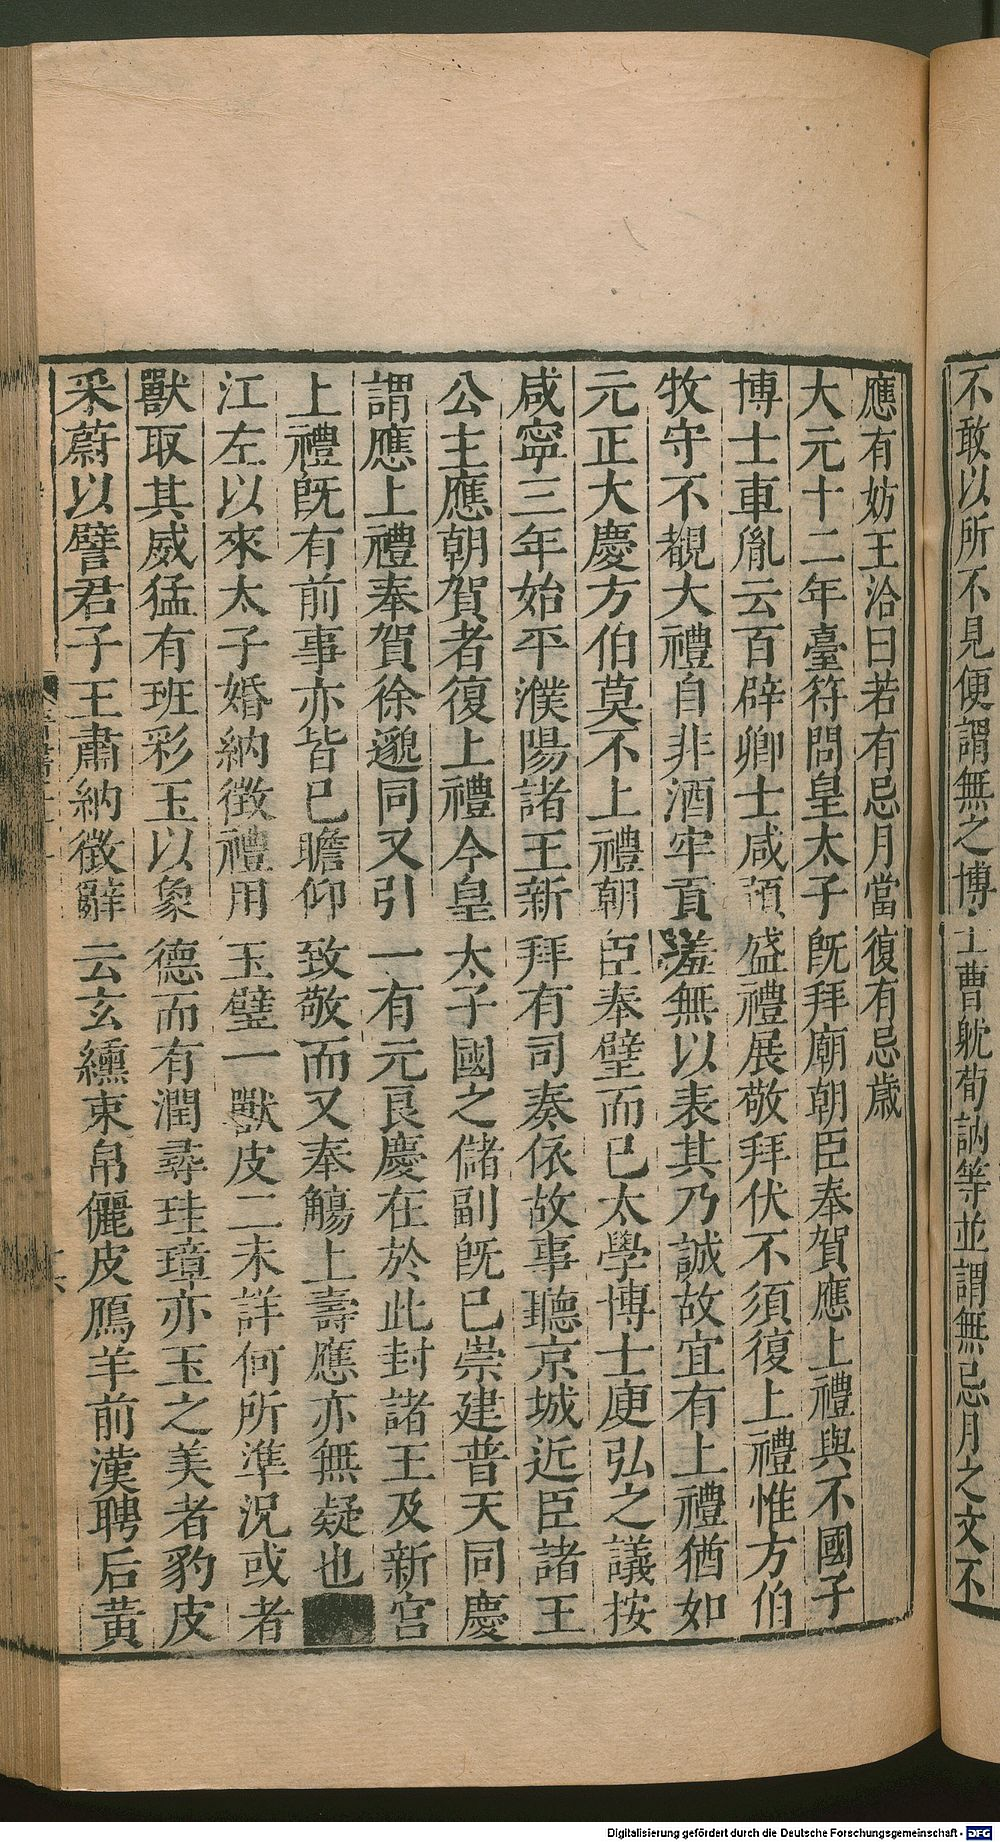 不敢以所不見便謂無之博士曹躭荀訥等並謂無忌月之文不
應有妨王洽曰若有忌月當復有忌歲
大元十二年臺符問皇太子既拜廟朝臣奉賀應上禮與不國子
博士車胤云百辟卿士咸預盛禮展敬拜伏不須復上禮惟方伯
牧守不覩大禮自非酒牢貢羞無以表其乃誠故宜有上禮猶如
元正大慶方伯莫不上禮朝臣奉璧而已太學博士庾弘之議按
咸寧三年始平濮陽諸王新拜有司奏依故事聽京城近臣諸王
公主應朝賀者復上禮今皇太子國之儲副既已崇建普天同慶
謂應上禮奉賀徐邈同又引一有元良慶在於此封諸王及新宮
上禮既有前事亦皆已瞻仰致敬而又奉觴上壽應亦無疑也
江左以來太子婚納徵禮用玉璧一獸皮二未詳何所準況或者
獸取其威猛有班彩玉以象德而有潤尋珪璋亦玉之美者豹皮
采蔚以譬君子王肅納徵辭云玄纁束帛儷皮鴈羊前漢聘后黃
Digitalisierung gefördert durch die Deutsche Forschungsgemeinschaft - DFG